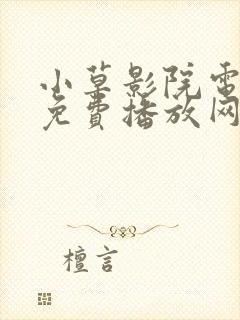 小草影院電
免費播放网
檀言